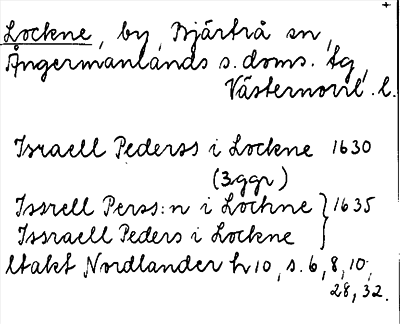 +
Lockne, by, Bjärtrå sn,
Ångermanlands s. doms. tg,
Västernorrl. l.
Israell Pederss i Lockne 1630
(3ggr)
Issrell Perss:n i Lockne } 1635
Issraell Peders i Lockne
ltakt Nordlander h 10, s. 6, 8, 10,
28, 32.